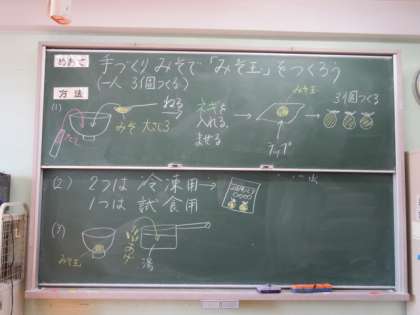 めあて 手づくりみそで「みそ玉」をつくろう
(一人 3個つくる)
方法
(1)
ねる
みそ 大さじ3
ネギを
入れる。
まぜる
みそ玉
ラップ
3個つくる
(2) 2つは 冷凍用→
1つは 試食用
(3)
みそ玉
湯